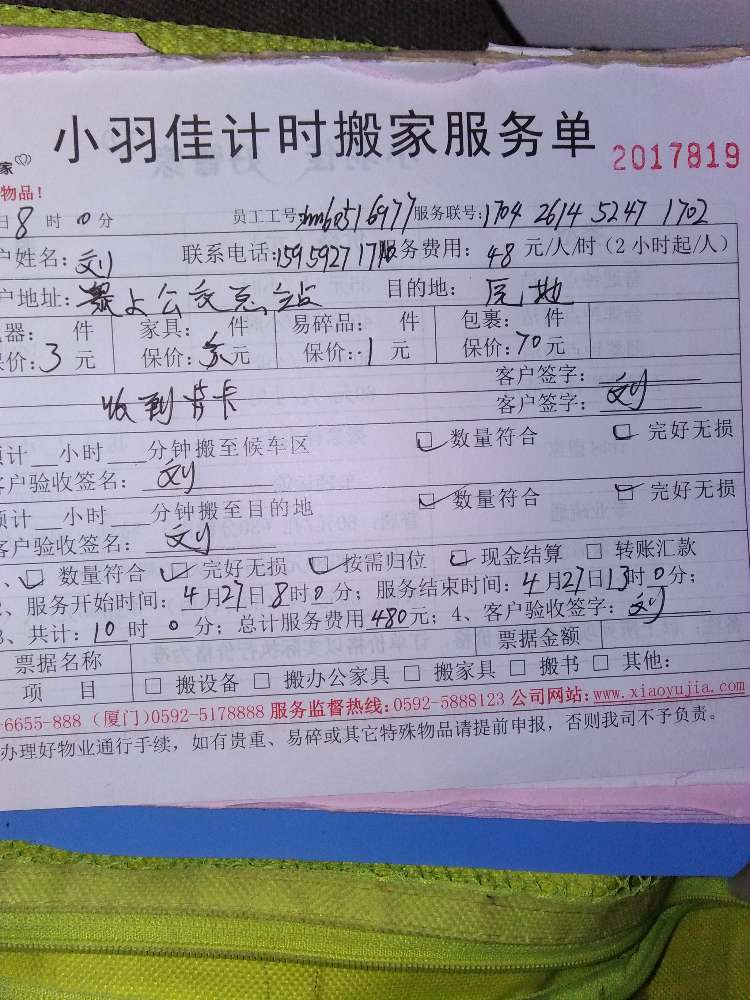 小羽佳计时搬家服务单
2017819
家
物品！
日8时0分 员工工号: 6851 6977 服务联号:1704 2614 5247 1702
户姓名:刘 联系电话:1595927171 服务费用:48元/人/时（2小时起/人）
户地址: 公交总站 目的地:原地
器: 件 家具: 件 易碎品: 件 包裹: 件
保价:3元 保价: 元 保价:1元 保价:70元
客户签字:
收到 卡 客户签字:刘
预计__小时___分钟搬至候车区 ☑数量符合 ☑完好无损
客户验收签名:刘
预计__小时___分钟搬至目的地 ☑数量符合 ☑完好无损
客户验收签名:刘
、☑数量符合 ☑完好无损 ☑按需归位 ☑现金结算 □转账汇款
2、服务开始时间:4月27日8时0分；服务结束时间:4月27日13时0分；
3、共计:10时0分；总计服务费用480元；4、客户验收签字:刘
票据名称 票据金额
项 目 □搬设备 □搬办公家具 □搬家具 □搬书 □其他:
-6655-888（厦门)0592-5178888 服务监督热线:0592-5888123 公司网站:www.xiaoyujia.com
办理好物业通行手续，如有贵重、易碎或其它特殊物品请提前申报，否则我司不予负责。